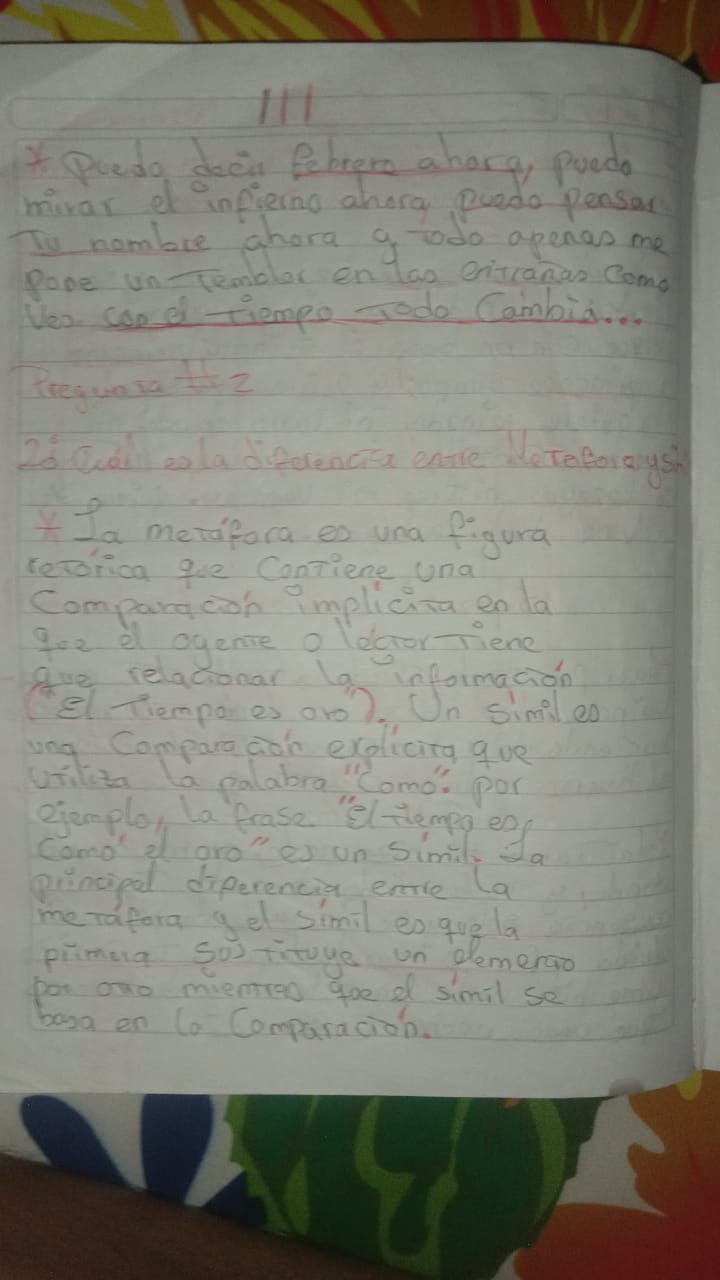 III
* Puedo decir febrero ahora, puedo
mirar el infierno ahora puedo pensar
Tu nombre ahora y todo apenas me
pone un temblor en las entrañas como
ves. con el tiempo todo cambia...
Pregunta #2
2ó Cuál es la diferencia entre Metafora y sí
* La metáfora es una figura
retórica que contiene una
comparación implicita en la
que el oyente o lector tiene
que relacionar la información
("El tiempo es oro"). Un simil es
una comparación explicita que
utiliza la palabra "como". por
ejemplo, la frase "El tiempo es
como el oro" es un símil. La
principal diferencia entre la
metáfora y el símil es que la
primera sustituye un elemento
por otro mientras que el símil se
basa en la comparación.